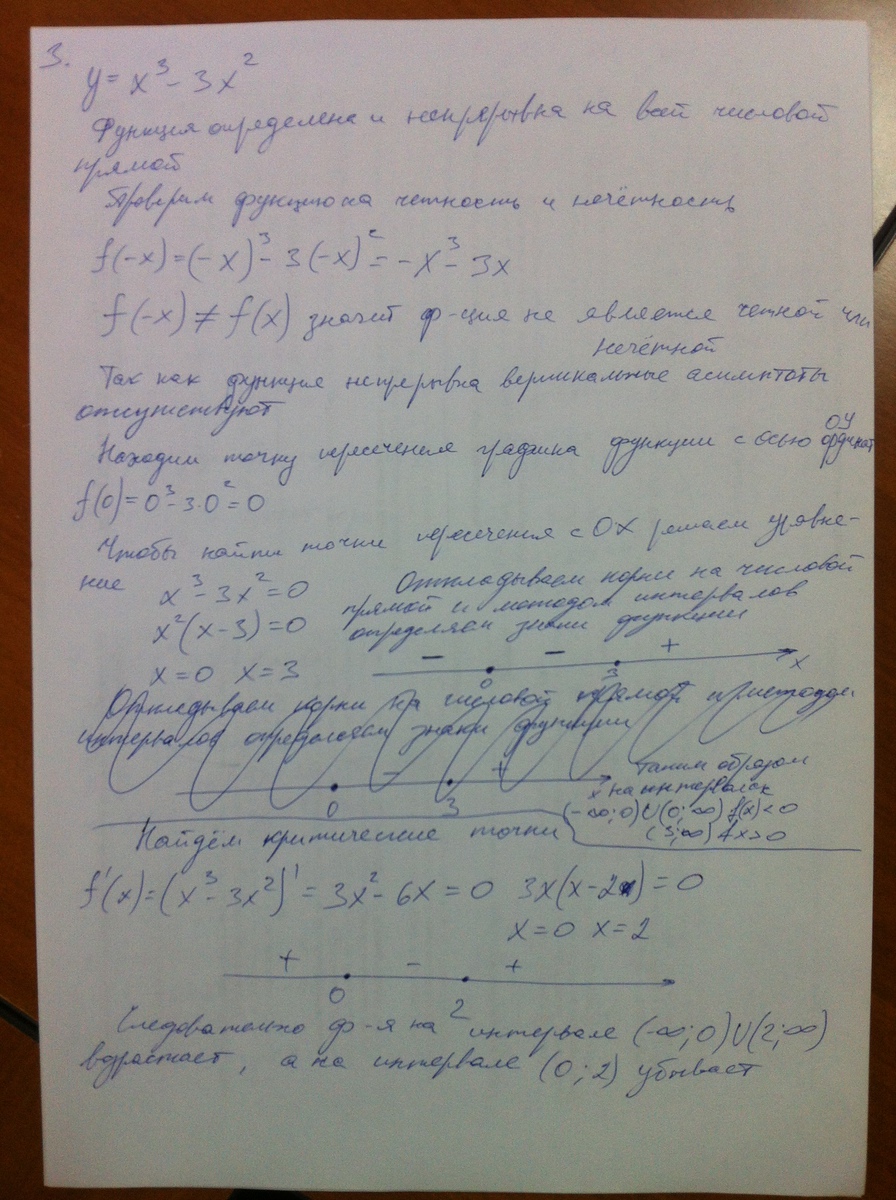 3.
y = x³ - 3x²
Функция определена и непрерывна на всей числовой
прямой
Проверим функцию на четность и нечётность
f(-x) = (-x)³ - 3(-x)² = -x³ - 3x
f(-x) ≠ f(x) значит ф-ция не является четной или
нечётной
Так как функция непрерывна вертикальные асимптоты
отсутствуют
Находим точку пересечения графика функции с осью ординат OY
f(0) = 0³ - 3·0² = 0
Чтобы найти точки пересечения с OX решаем уравне-
ние
x³ - 3x² = 0
x²(x-3) = 0
x=0 x=3
Откладываем корни на числовой
прямой и методом интервалов
определяем знаки функции
- - +
0 3 x
Откладываем корни на числовой прямой и методом
интервалов определяем знаки функции
- +
0 3 x
Таким образом
на интервалах
(-∞;0)∪(0;∞) f(x)<0
(3;∞) fx>0
Найдём критические точки
f'(x) = (x³ - 3x²)' = 3x² - 6x = 0 3x(x-2) = 0
x=0 x=2
+ - +
0 2
Следовательно ф-я на интервале (-∞;0)∪(2;∞)
возрастает, а на интервале (0;2) убывает